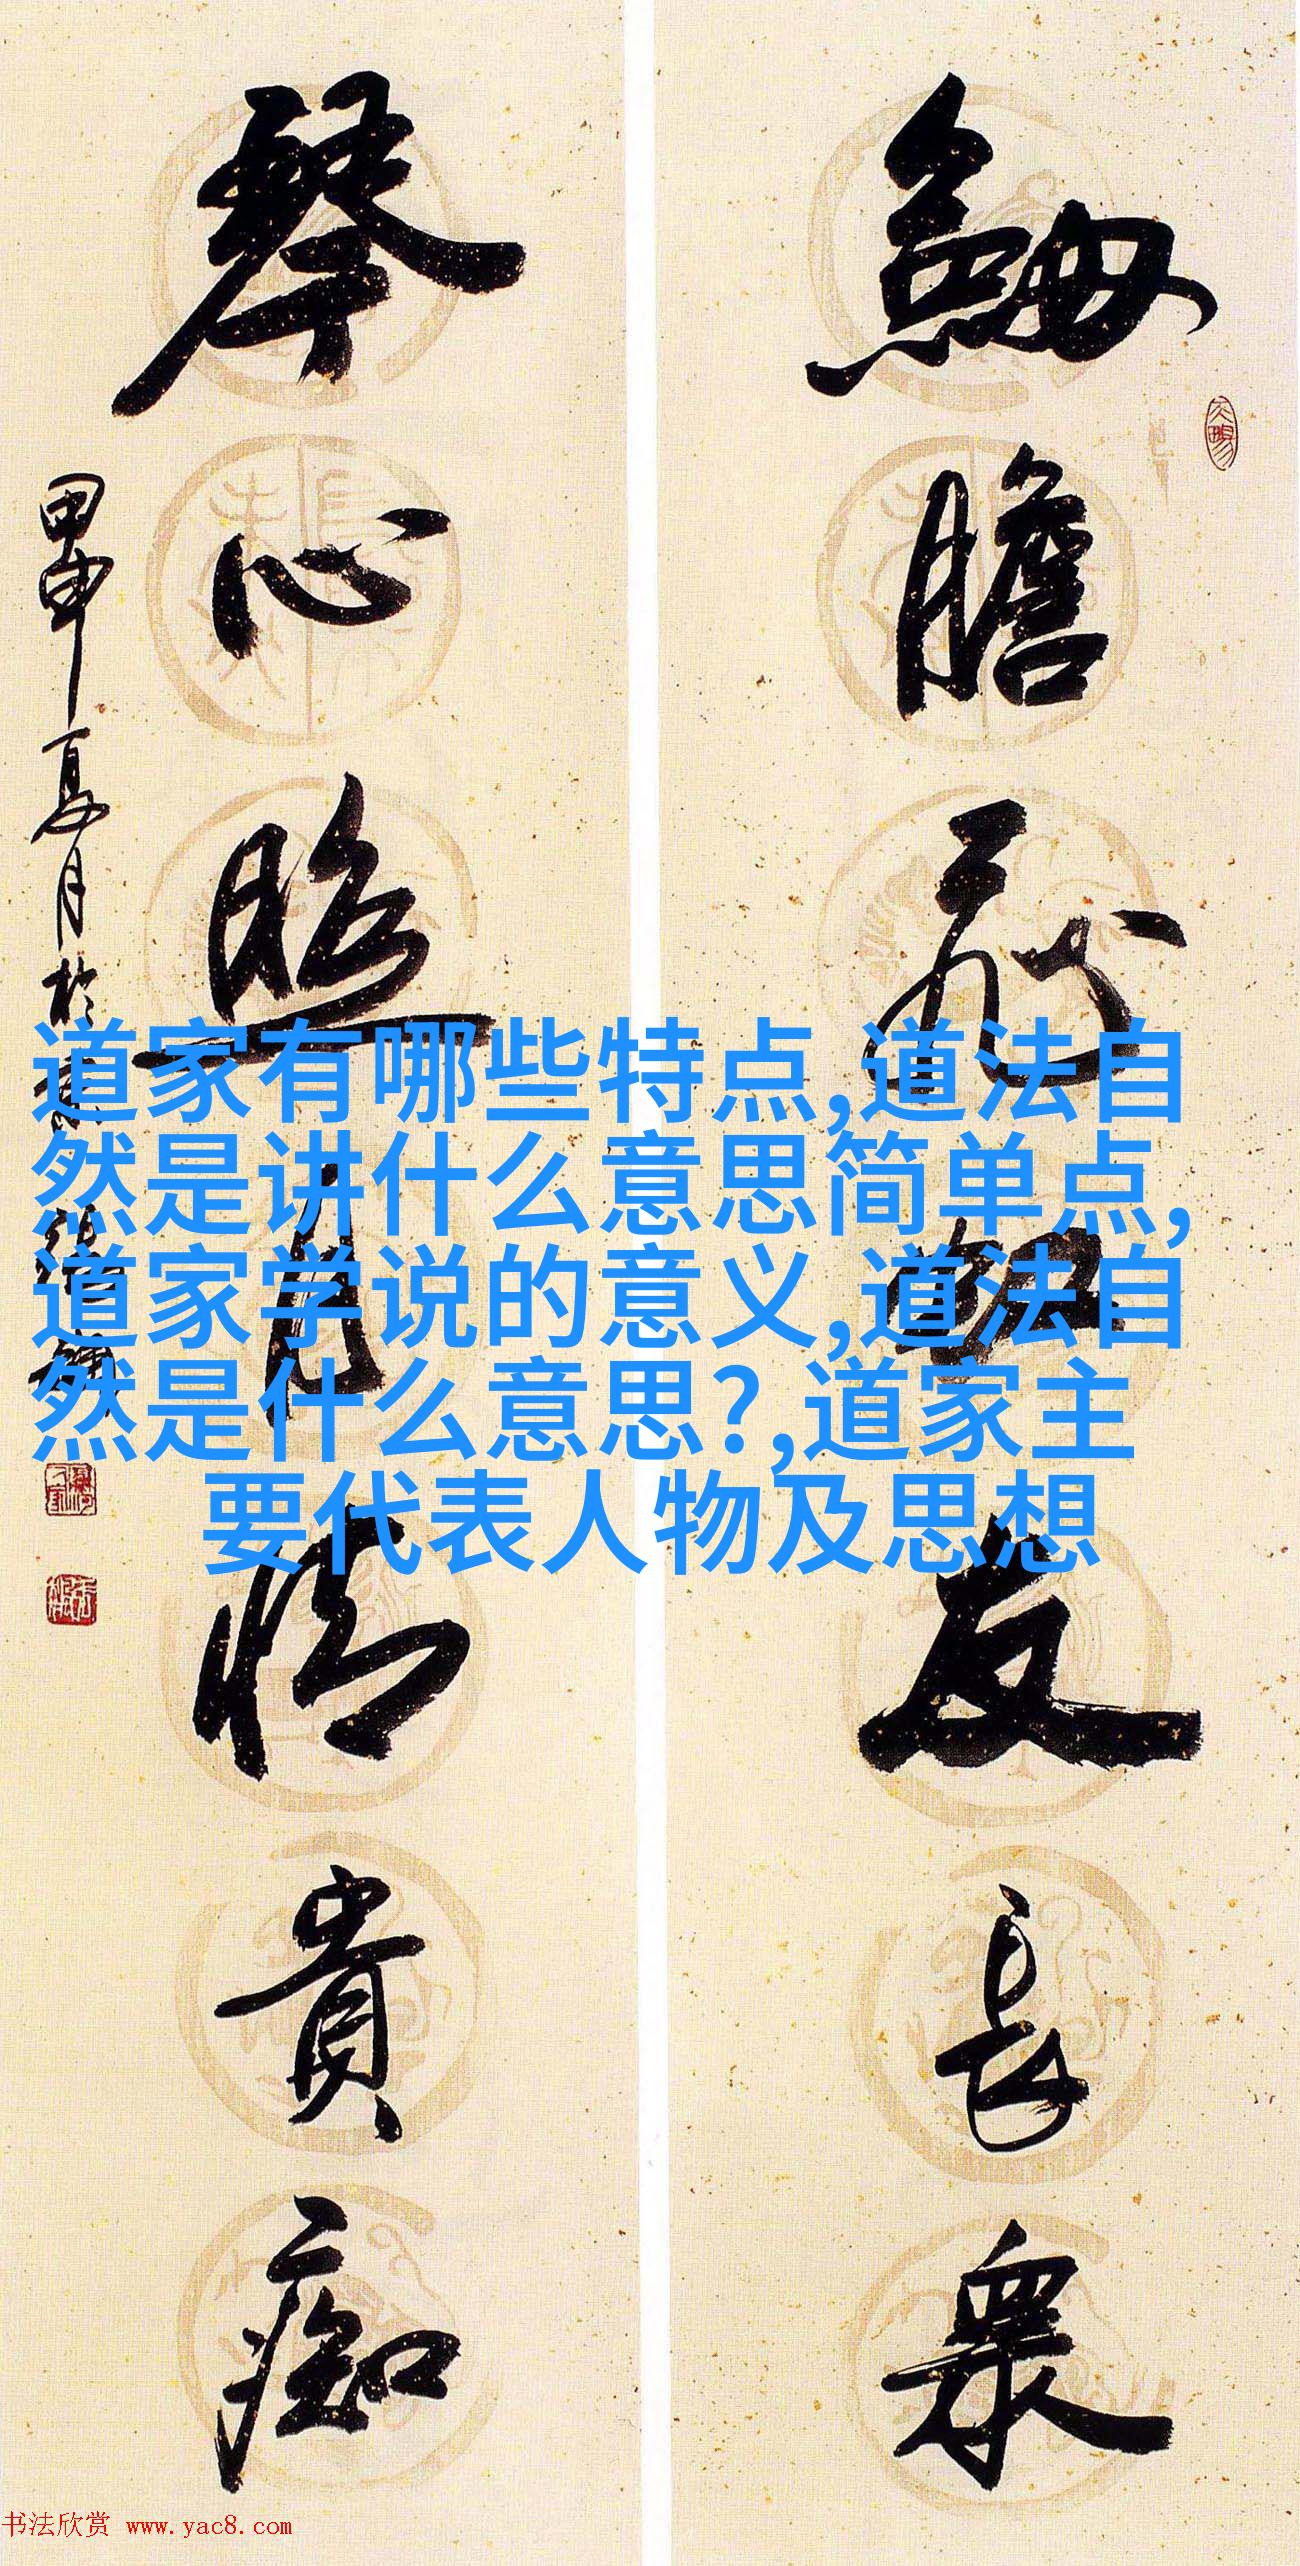 膽友長衆
琴心照月情貴痴
甲申夏月於
道家有哪些特点,道法自
然是讲什么意思简单点,
道家学说的意义,道法自
然是什么意思?,道家主
要代表人物及思想
书法欣赏 www.yac8.com